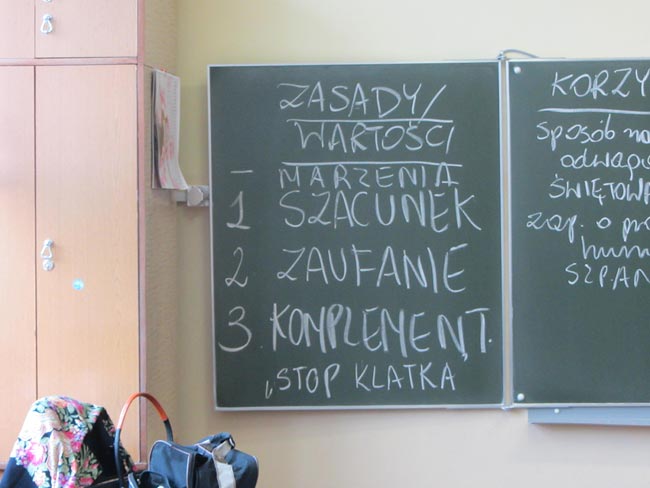 ZASADY/
WARTOŚCI
– MARZENIA
1 SZACUNEK
2 ZAUFANIE
3. KOMPLEMENT.
STOP KLATKA
KORZY
sposób na
odwagi
ŚWIĘTOWA
zap. o pr
hum
SZP.AN